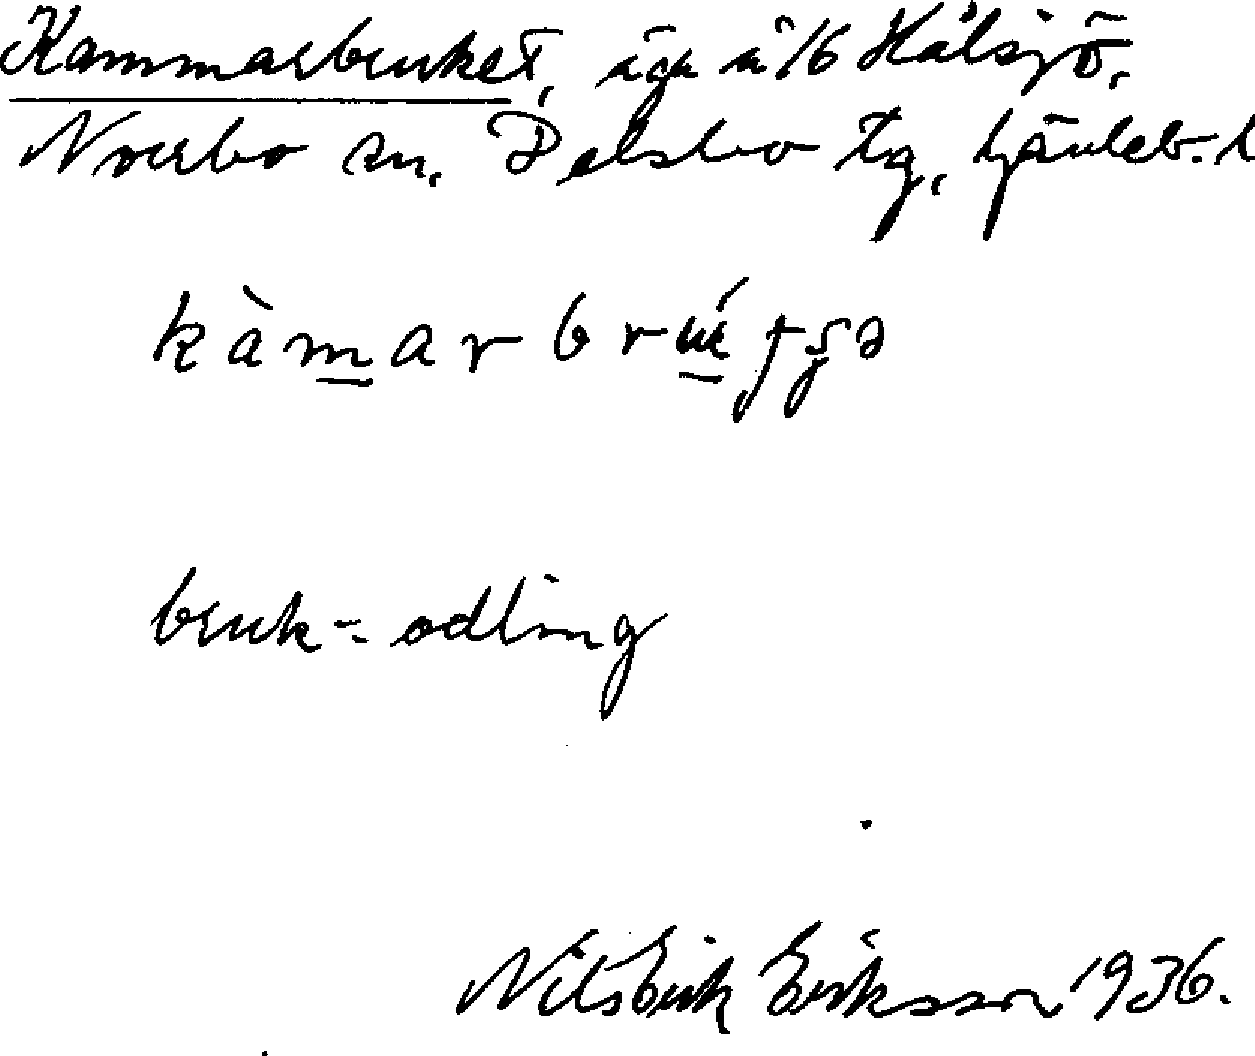 Kammarbruket, äga å 16 Hålsjö,
Norrbo sn. Delsbo tg, Gävleb. l
bruk -: odling
Nils Erik Eriksson 1936.